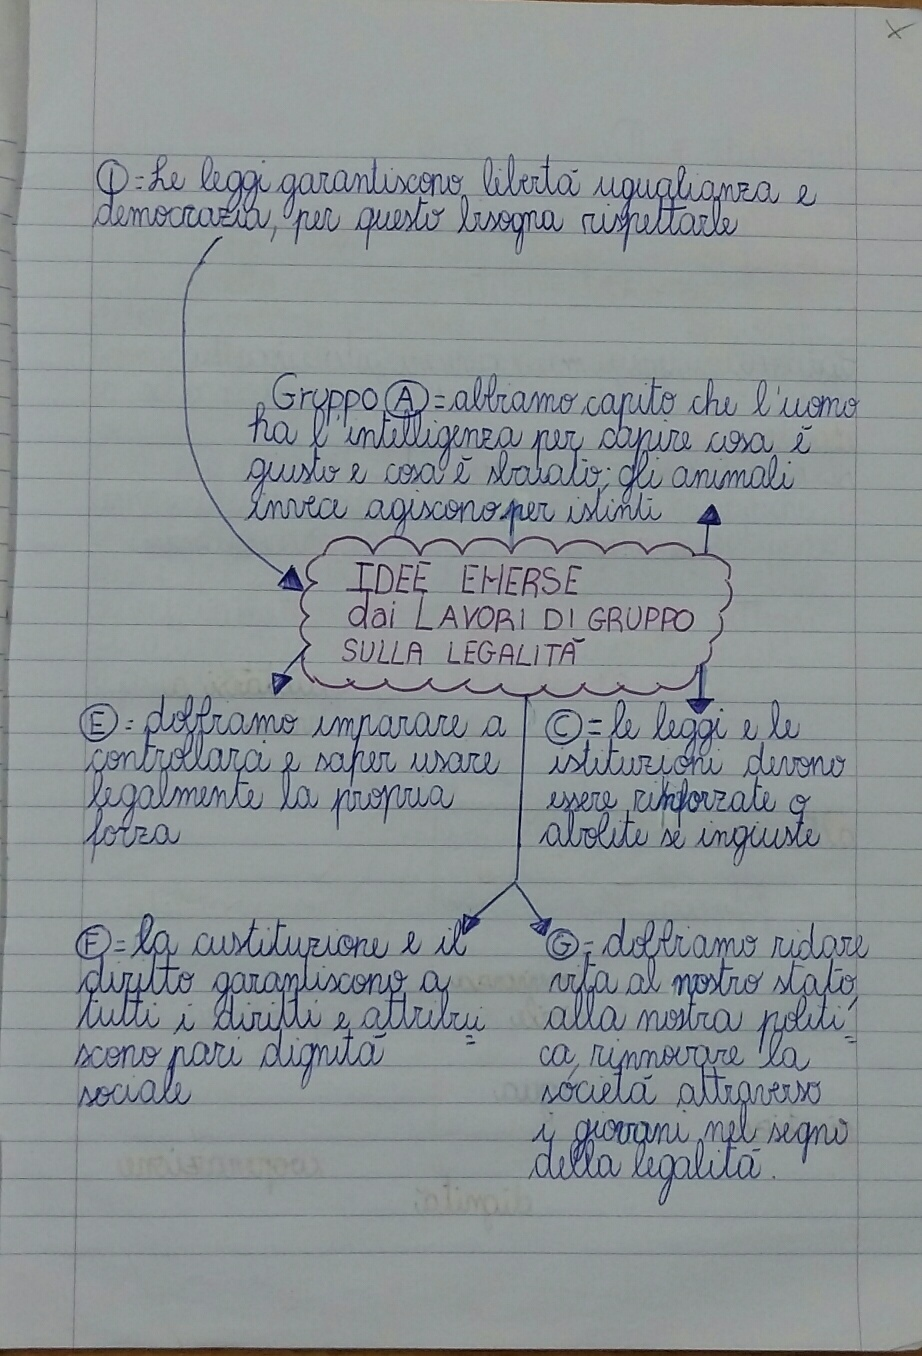 I = Le leggi garantiscono libertà uguaglianza e
democrazia, per questo bisogna rispettarle
Gruppo A = abbiamo capito che l'uomo
ha l'intelligenza per capire cosa è
giusto e cosa è sbagliato; gli animali
invece agiscono per istinti
IDEE EMERSE
dai LAVORI DI GRUPPO
SULLA LEGALITÀ
E = dobbiamo imparare a
controllarci e saper usare
legalmente la propria
forza
C = le leggi e le
istituzioni devono
essere rinforzate o
abolite se ingiuste
F = la custituzione e il
diritto garantiscono a
tutti i diritti e attribui=
scono pari dignità
sociale
G = dobbiamo ridare
vita al nostro stato,
alla nostra politi=
ca, rinnovare la
società attraverso
i giovani nel segno
della legalità.